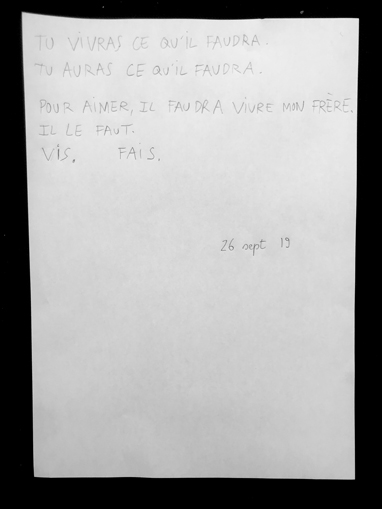 TU ViVRAS CE QU'iL FAUDRA.
TU AURAS CE QU'iL FAUDRA.
POUR AiMER, IL FAUDRA ViVRE MON FRÈRE.
IL LE FAUT.
ViS. FAiS.
26 sept 19